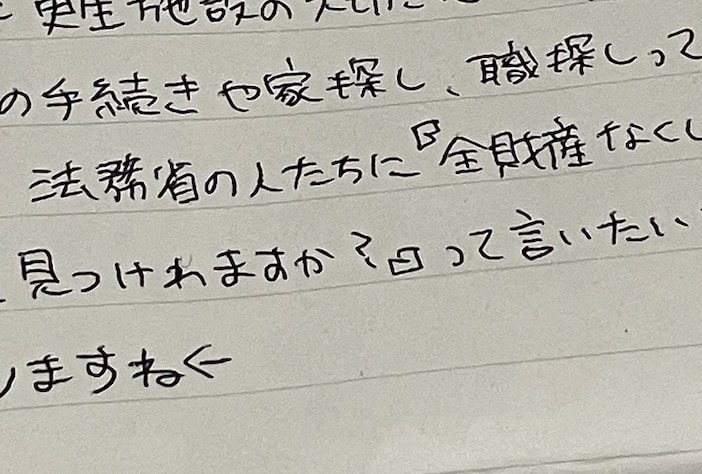 更生施設の人に
の手続きや家探し、職探しって
法務省の人たちに『全財産なくし
見つけれますか?』って言いたい
しますね←